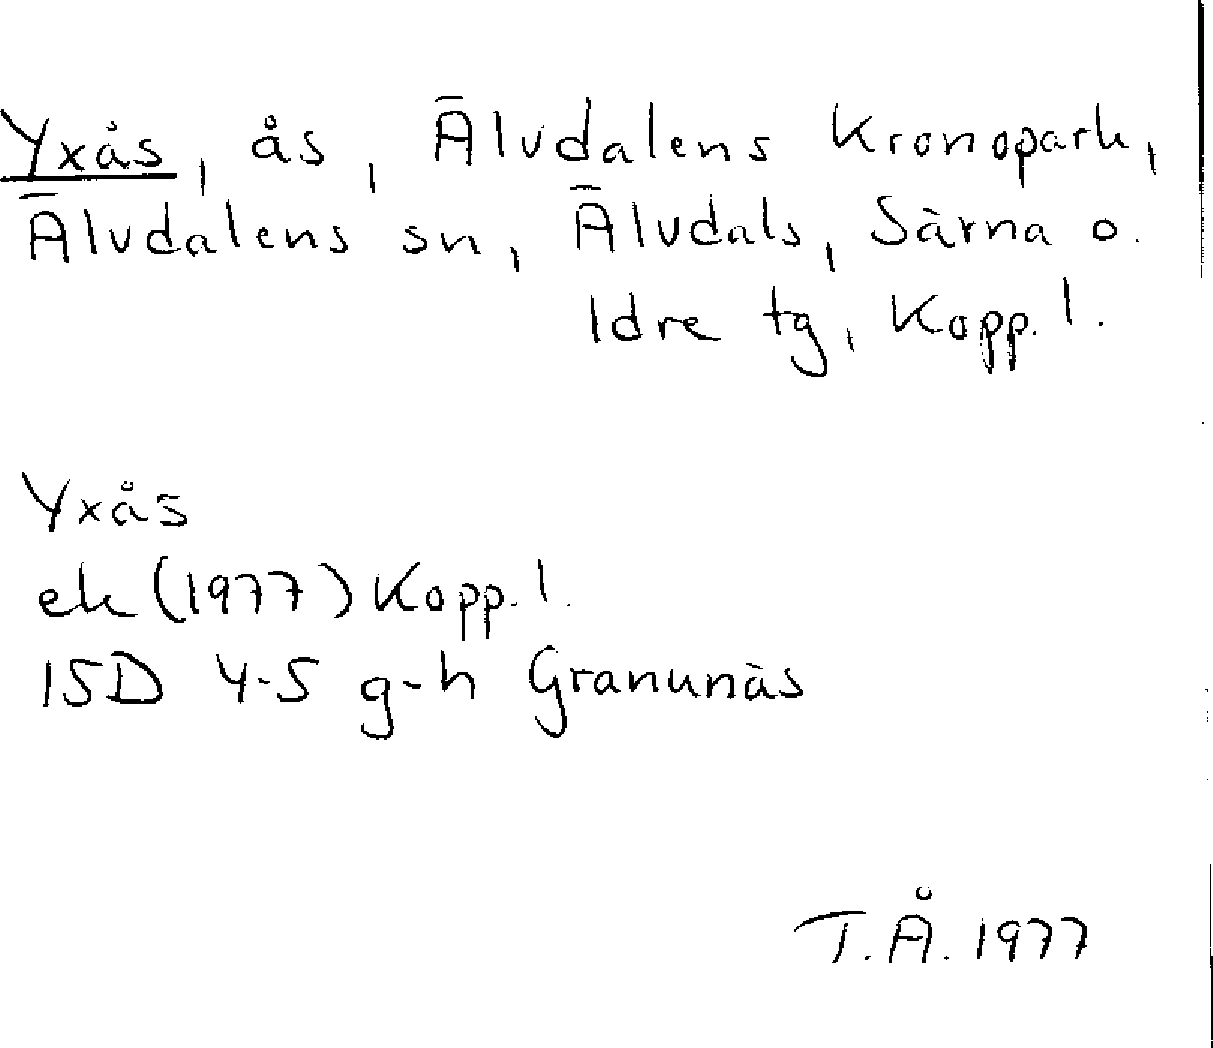 Yxås, ås, Älvdalens Kronopark,
Älvdalens sn, Älvdals, Särna o.
Idre tg, Kopp. l.
Yxås
ek (1977) Kopp. l.
15D 4-5 g-h Granunäs
T.Å. 1977